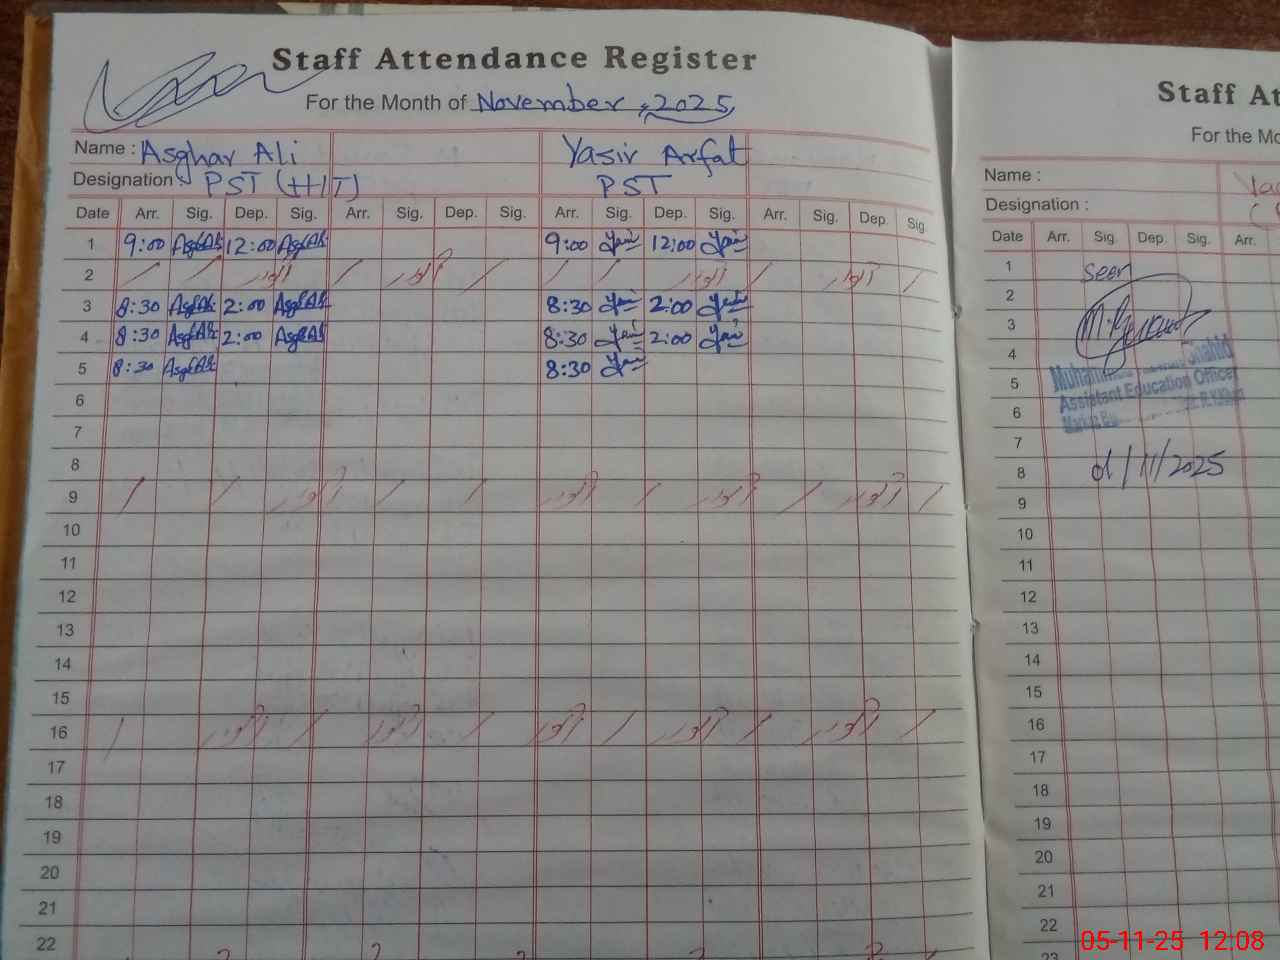 Staff Attendance Register
For the Month of November, 2025
Name : Asghar Ali Yasir Arfat
Designation : PST (HIT) PST
Date Arr. Sig. Dep. Sig. Arr. Sig. Dep. Sig. Arr. Sig. Dep. Sig. Arr. Sig. Dep. Sig.
1 9:00 AsghAli 12:00 AsghAli 9:00 12:00
2 اتوار اتوار اتوار اتوار
3 8:30 AsghAli 2:00 AsghAli 8:30 2:00
4 8:30 AsghAli 2:00 AsghAli 8:30 2:00
5 8:30 AsghAli 8:30
6
7
8
9 اتوار اتوار اتوار اتوار
10
11
12
13
14
15
16 اتوار اتوار اتوار اتوار اتوار
17
18
19
20
21
22
Staff At
For the Mo
Name :
Designation :
Date Arr. Sig. Dep. Sig. Arr.
1 seen
2
3
4
5 Assistant Education Officer
6 Markaz
7
8 /11/2025
9
10
11
12
13
14
15
16
17
18
19
20
21
22
23
05-11-25 12:08